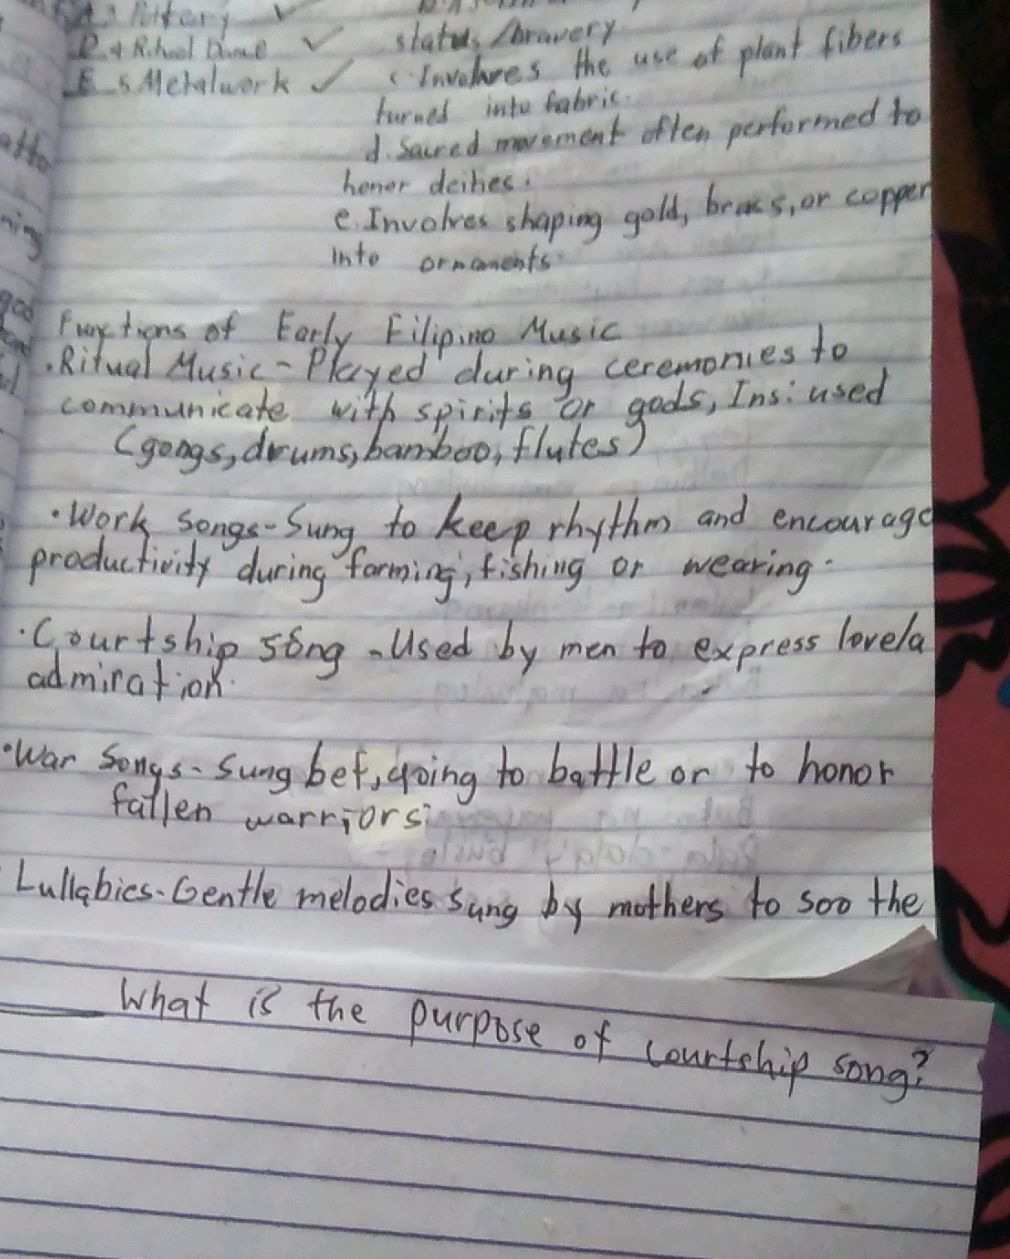 Pottery
D. 4 Ritual Dance
E. 5 Metalwork
status/bravery
c. Involves the use of plant fibers
turned into fabric.
d. Sacred movement often performed to
honor deities.
e. Involves shaping gold, brass, or copper
into ornaments.
Functions of Early Filipino Music
. Ritual Music - Played during ceremonies to
communicate with spirits or gods, Ins: used
(gongs, drums, bamboo, flutes)
. Work Songs - Sung to keep rhythm and encourage
productivity during farming, fishing or wearing.
. Courtship song - Used by men to express love/a
admiration.
. War Songs - Sung bef, going to battle or to honor
fallen warriors
Lullabies - Gentle melodies sung by mothers to soo the
What is the purpose of courtship song?